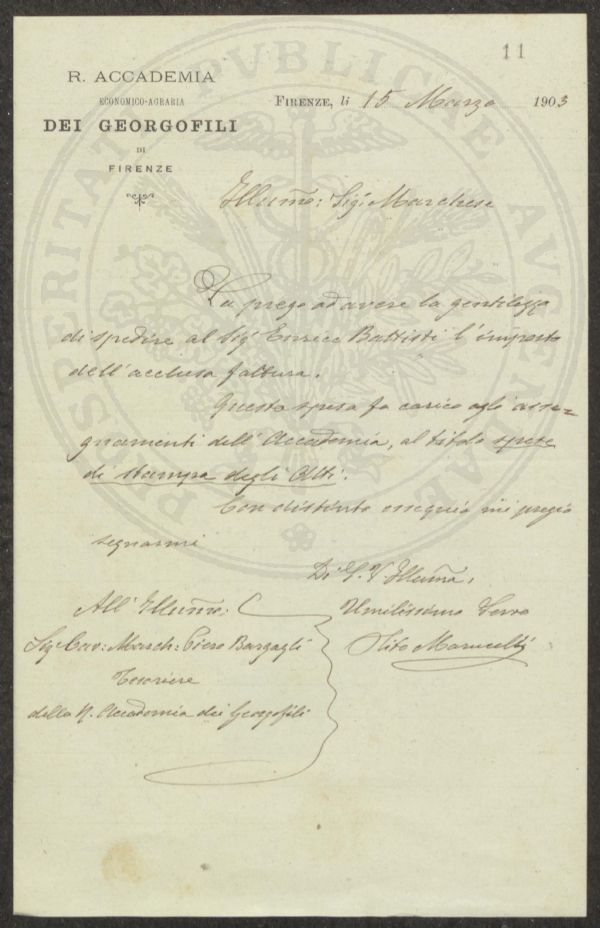 11
R. ACCADEMIA
ECONOMICO-AGRARIA
DEI GEORGOFILI
DI
FIRENZE
FIRENZE, li 15 Marzo 1903
Illuño: Sigʳ Marchese
La prego ad avere la gentilezza
di spedire al Sigʳ Enrico Battisti l'importo
dell'acclusa fattura.
Questa spesa fa carico agli asse-
gnamenti dell'Accademia, al titolo spese
di stampa degli Atti.
Con distinto ossequio mi pregio
segnarmi
Di S. V. Illuña.
Umilissimo Servo
Tito Marucelli
All'Illuño:
Sigʳ Cav: March: Piero Bargagli
Tesoriere
della R. Accademia dei Georgofili
PROSPERITATI PVBLICAE AVGENDAE